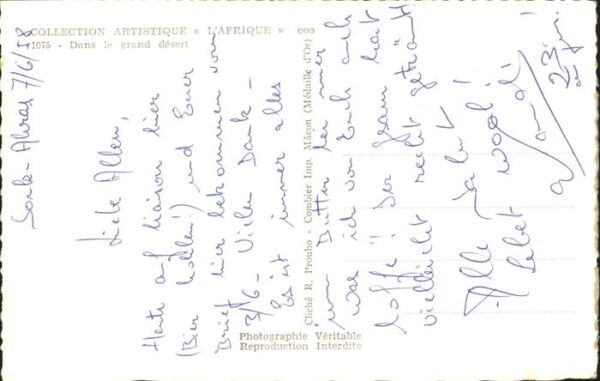 COLLECTION ARTISTIQUE « L'AFRIQUE » 000
1075 - Dans le grand désert
Cliché R. Prouho - Combier Imp. Mâcon (Médaille d'Or)
Photographie Véritable
Reproduction Interdite
Souk-Ahras 7/6/58
Liebe Allen,
Heute auf liaison hier
(Bier holen!) und Euer
Brief hier bekommen vom
3/6 - Vielen Dank -
Es ist immer alles
in Butter bei mir
was ich von Euch auch
hoffe!! Der Jean hat
vielleicht recht geträumt
Alle Salut
Lebet wool!
23
au jus.